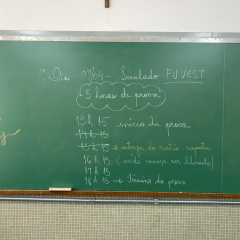 1º Dia 07/04 - Simulado FUVEST
5 horas de prova
13h15 início da prova
14h15
15h15 → entrega do cartão resposta
16h15 (saída começa ser liberada)
17h15
18h15 → término da prova